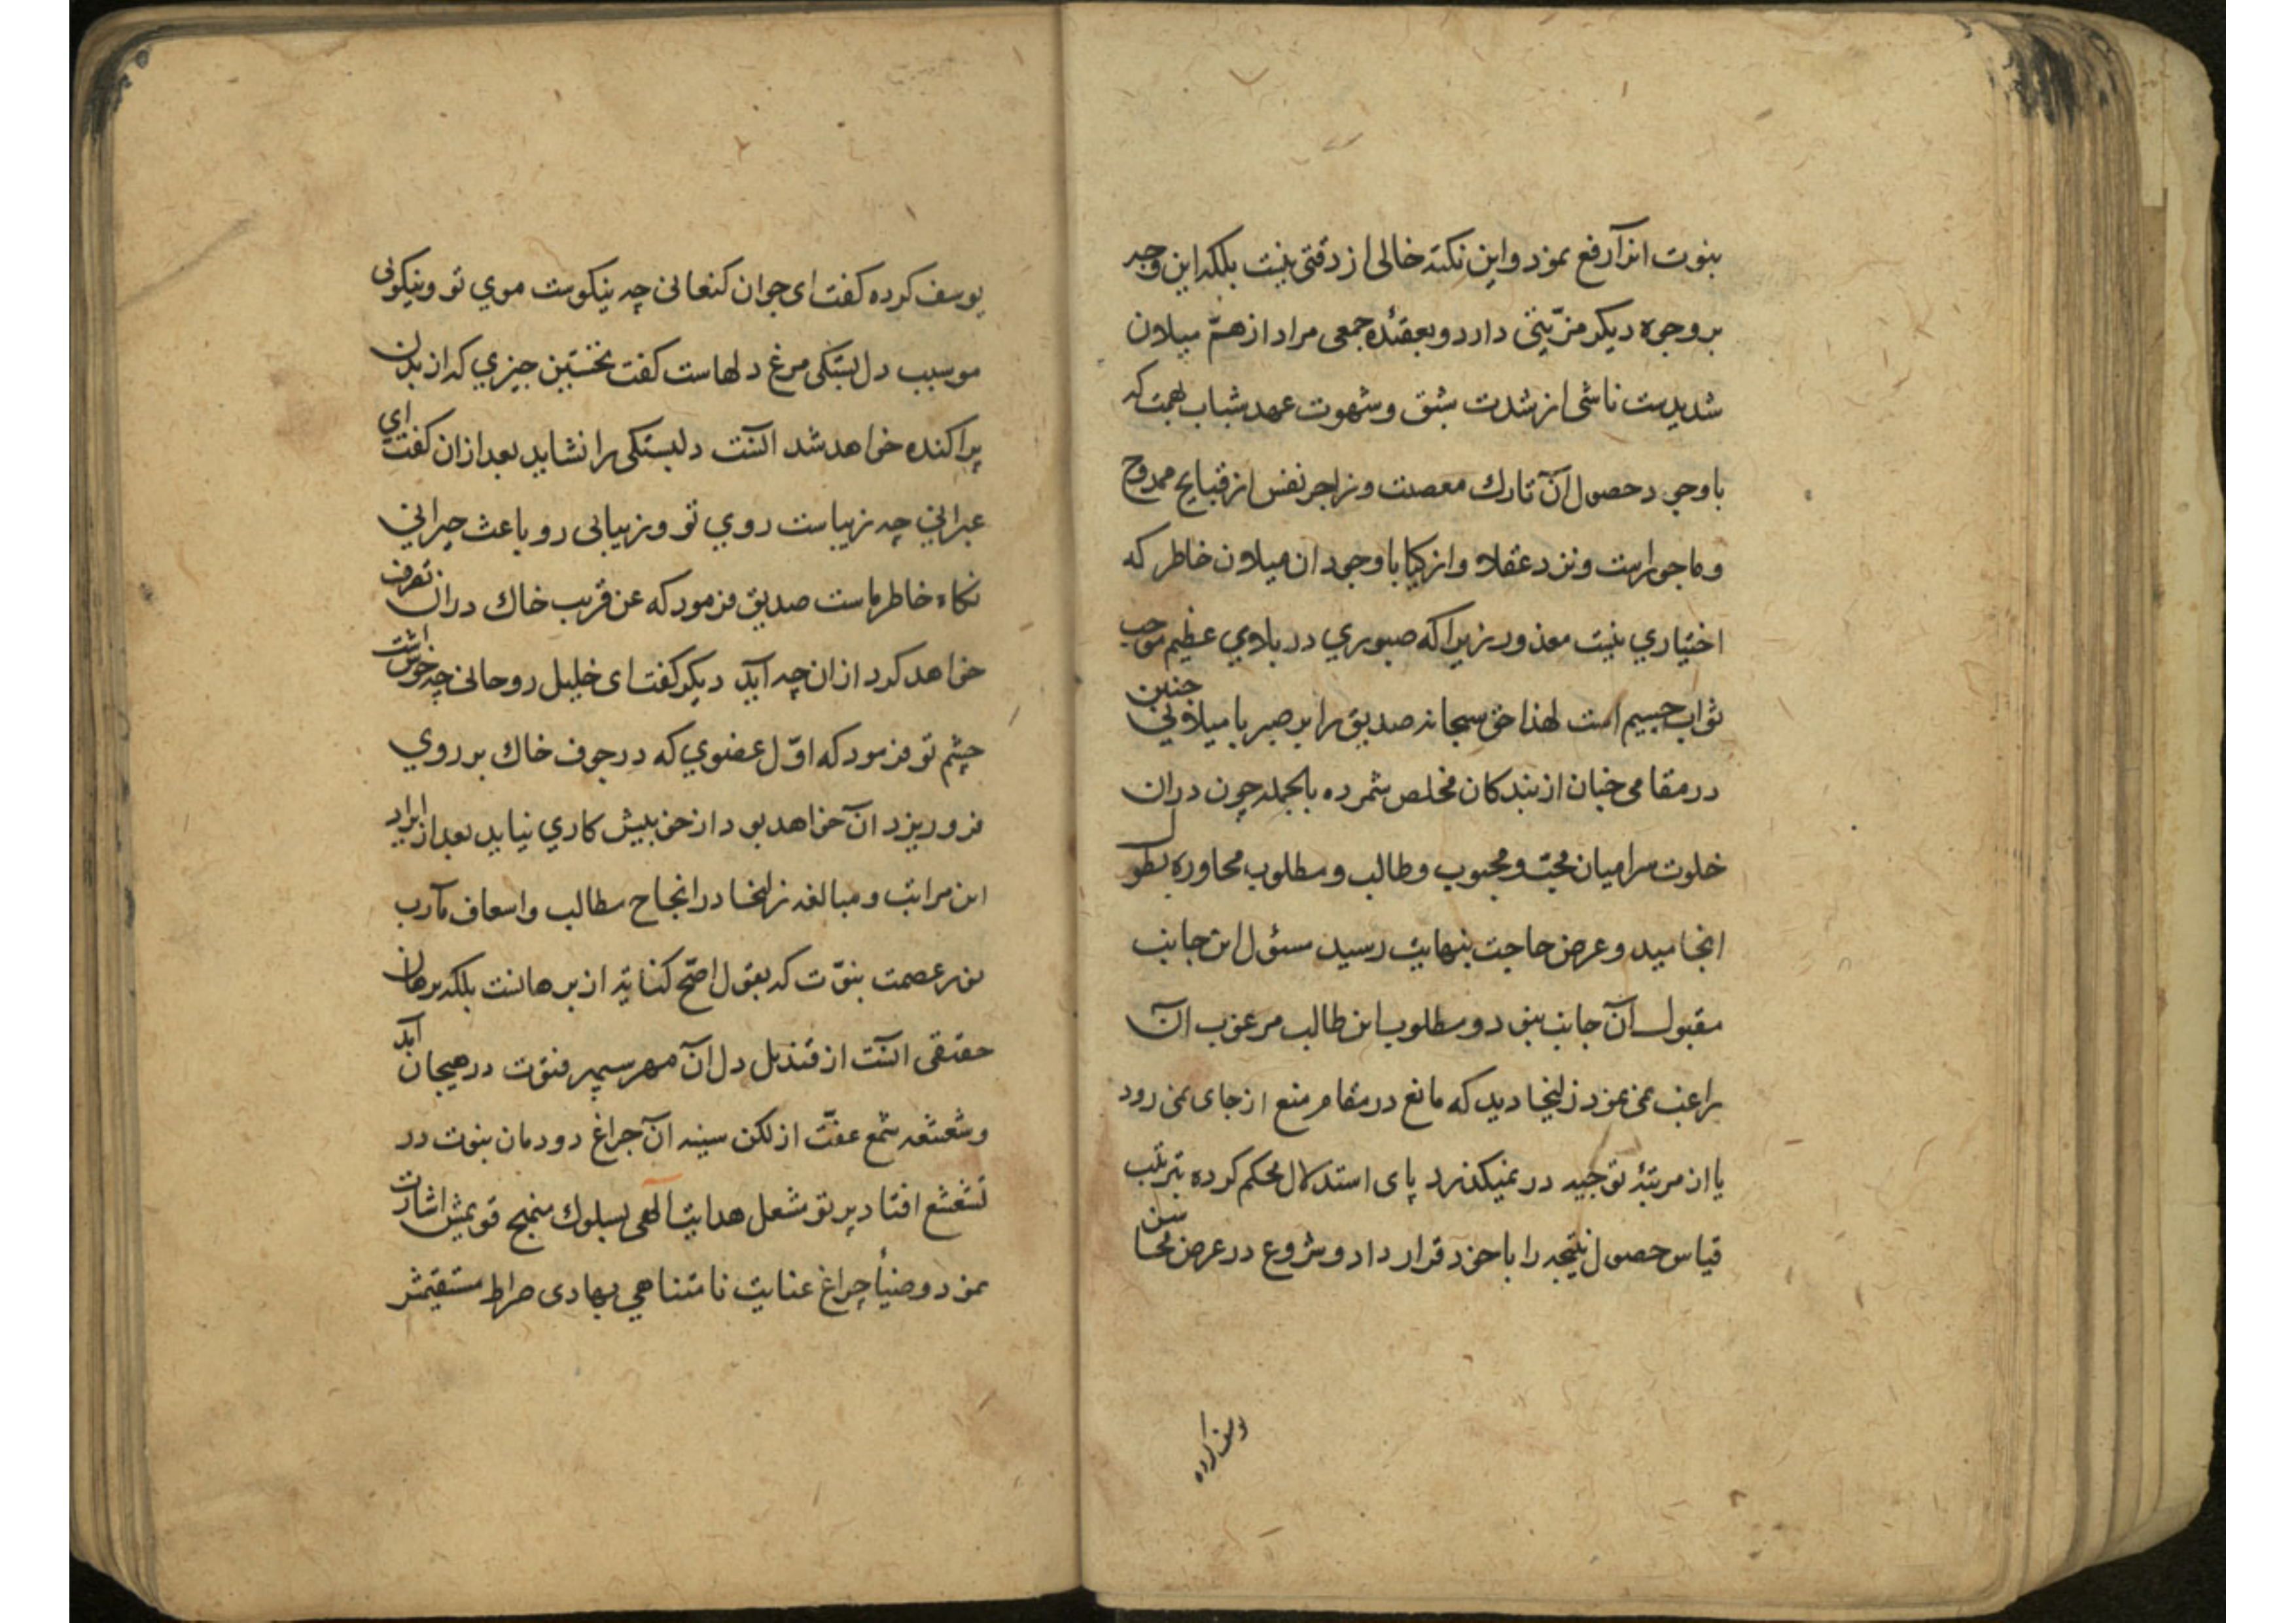 بنوت انرا رفع نمود و این نکته خالی از دقتی نیست بلکه این وجه
بر وجوه دیکر مزیتی دارد و بعقیده جمعی مراد از همّ میلان
شدیدست ناشی از شدت شبق و شهوت عهد شباب بهمت که
با وجود حصول آن تارك معصیت و زاجر نفس از قبایح ممدوح
و ماجورست و نزد عقلا و ازکیا با وجود ان میلان خاطر که
اختیاري نیست معذور زیرا که صبوري در بلاوي عظیم موجب
ثواب جسیم است لهذا حق سبحانه صدیق را بر صبر با میلانی چنین
در مقامی چنان از بندکان مخلص شمرده بالجمله چون دران
خلوت سرا میان محب و محبوب و طالب و مطلوب محاوره بطول
انجامید و عرض حاجت بنهایت رسید مسئول این جانب
مقبول آن جانب نبود و مطلوب این طالب مرغوب آن
راغب نمی نمود زلیخا دید که مانع در مقام منع از جای نمی رود
یا از مرتبۀ توجیه در نمیکذرد پای استدلال محکم کرده بترتیب
قیاس حصول نتیجه را با خود قرار داد و شروع در عرض محاسن
یوسف کرده
یوسف کرده کفت ای جوان کنعانی چه نیکوست موي تو و نیکوئی
مو سبب دل بستکی مرغ دلهاست کفت نخستین چیزي که از بدن
پراکنده خواهد شد آنست دلبستکی را نشاید بعد ازان کفت ای
عبرانی چه زیباست روي تو و زیبائی رو باعث حیرانی
نکاه خاطرهاست صدیق فرمود که عن قریب خاك دران تصرف
خواهد کرد ازان چه آید دیکر کفت ای خلیل روحانی چه خوشست
چشم تو فرمود که اوّل عضوي که در جوف خاك بر روي
فرو ریزد آن خواهد بود از خود بینش کاري نیاید بعد از ایراد
این مراتب و مبالغه زلیخا در انجاح مطالب و اسعاف مآرب
نور عصمت بنوّت که بقول اصح کنایه از برهانست بلکه برهان
حقیقی آنست از قندیل دل آن مهر سپهر فتوّت در هیجان آمد
و شعشعه شمع عفّت از لکن سینه آن چراغ دودمان بنوت در
تشعشع افتاد پرتو شعل هدایت آلهی بسلوك منهج قویمش اشارت
نمود و ضیاء چراغ عنایت نامتناهی بهادی صراط مستقیمش